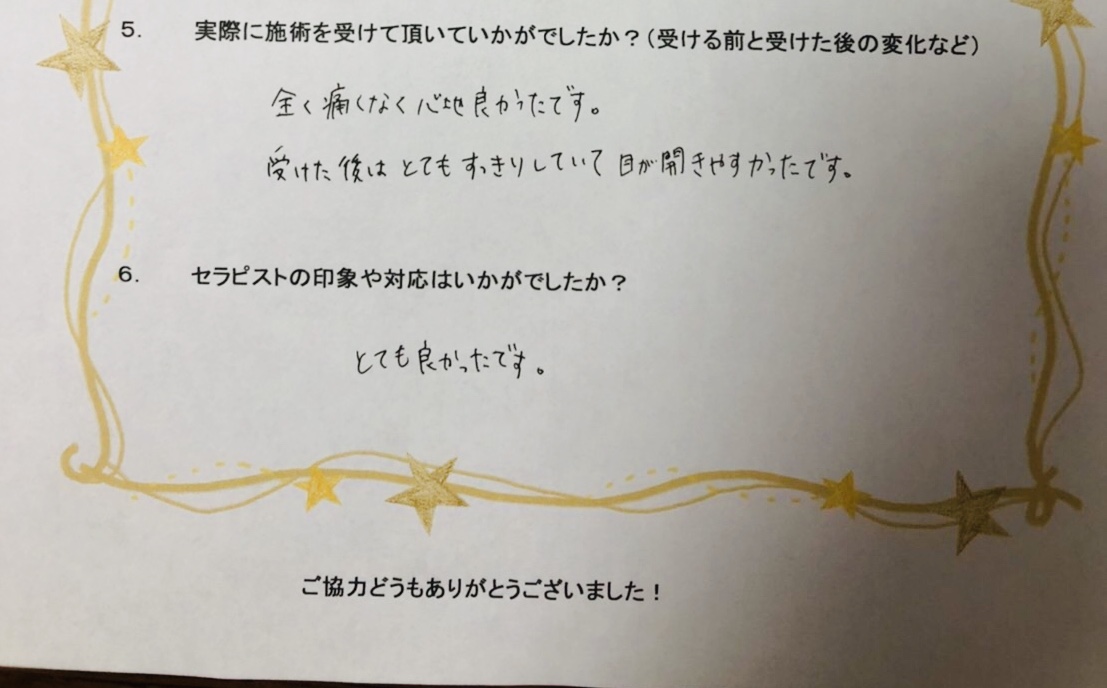 5. 実際に施術を受けて頂いていかがでしたか？（受ける前と受けた後の変化など）
全く痛くなく心地良かったです。
受けた後はとてもすっきりしていて目が開きやすかったです。
6. セラピストの印象や対応はいかがでしたか？
とても良かったです。
ご協力どうもありがとうございました！